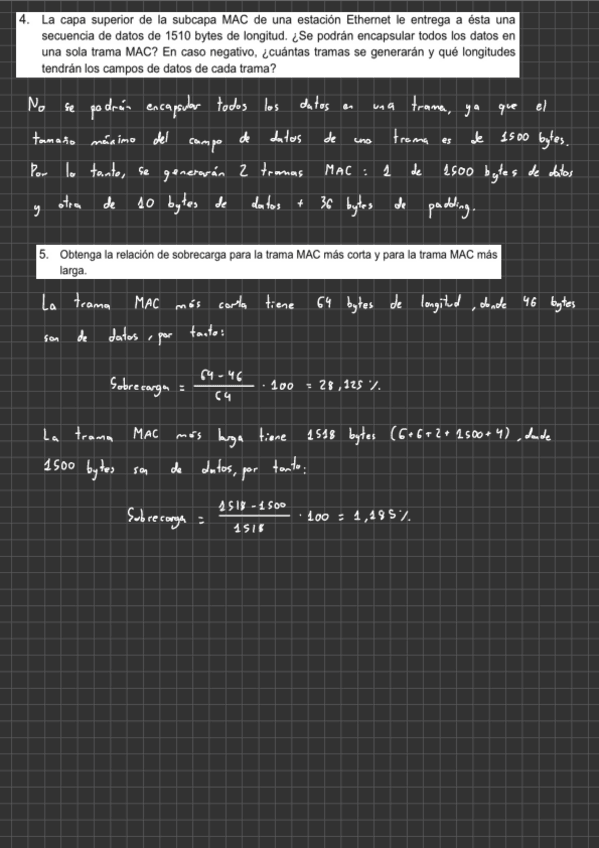 4. La capa superior de la subcapa MAC de una estación Ethernet le entrega a ésta una
secuencia de datos de 1510 bytes de longitud. ¿Se podrán encapsular todos los datos en
una sola trama MAC? En caso negativo, ¿cuántas tramas se generarán y qué longitudes
tendrán los campos de datos de cada trama?
No se podrán encapsular todos los datos en una trama, ya que el
tamaño máximo del campo de datos de una trama es de 1500 bytes.
Por lo tanto, se generarán 2 tramas MAC : 1 de 1500 bytes de datos
y otra de 10 bytes de datos + 36 bytes de padding.
5. Obtenga la relación de sobrecarga para la trama MAC más corta y para la trama MAC más
larga.
La trama MAC más corta tiene 64 bytes de longitud, donde 46 bytes
son de datos, por tanto:
Sobrecarga = (64 - 46)/64 · 100 = 28,125 %.
La trama MAC más larga tiene 1518 bytes (6+6+2+1500+4), donde
1500 bytes son de datos, por tanto:
Sobrecarga = (1518 - 1500)/1518 · 100 = 1,185 %.